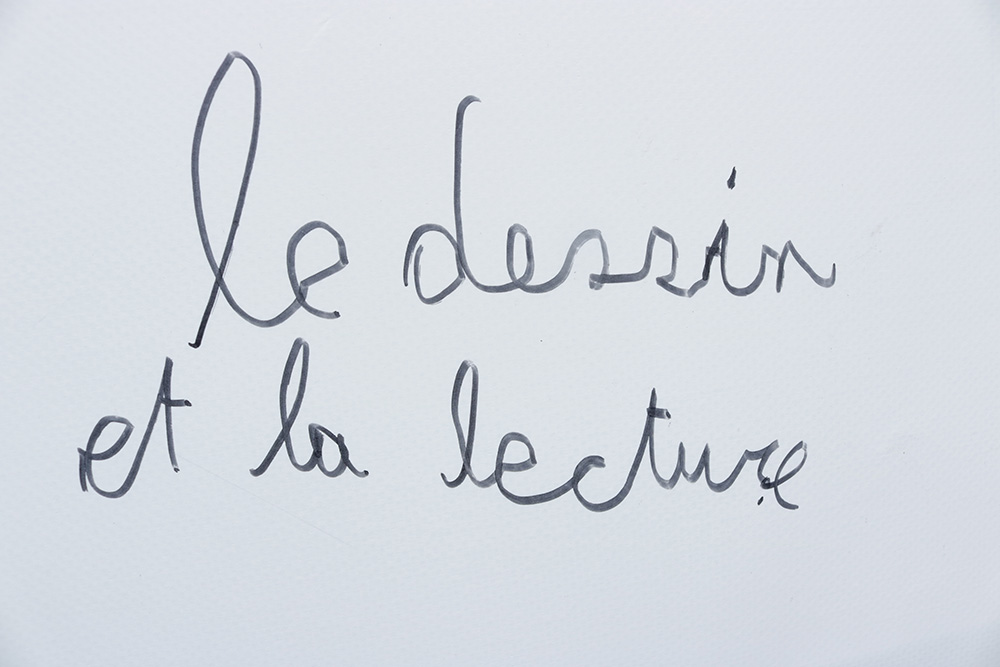 le dessin
et la lecture